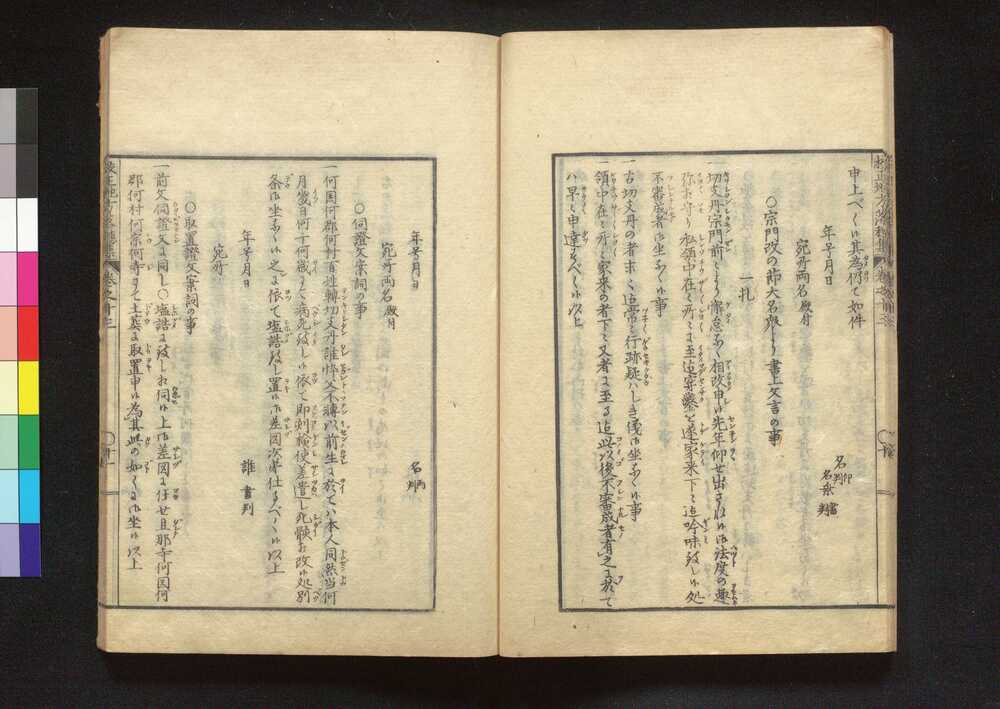 申上べく候其為仍て如件
年号月日
名印判
宛所両名殿付
○宗門改の節大名衆より書上文言の事
一札
一切支丹宗門前より懈怠なく相改申候先年仰せ出され候御法度の趣
弥相守り私領中在々所々に至迄穿鑿を遂家来下々迄吟味致し候処
不審成者御坐なく候事
一古切支丹の者并に迄常々行跡疑ハしき儀御坐なく候事
一領中在々所々家来の者下々又者に至る迄此以後不審成者有之に於て
ハ早々申達すべく候以上
年号月日
名両判
宛所両名殿付
○伺證文案詞の事
一何国何郡何村百姓轉切支丹誰忰又不轉以前生に於てハ本人同然当何
月幾日何十何歳にて病死致し候依て即刻検使差遣し死骸相改候処別
条御坐なく候之に依て塩詰致し置候御差図次第仕るべく候以上
年号月日
誰書判
宛所
○取置證文案詞の事
一前文伺證文に同し○塩詰に致し相伺候上御差図に任せ旦那寺何国何
郡何村何宗何寺にて土葬に取置申候為其此の如くに御坐候以上